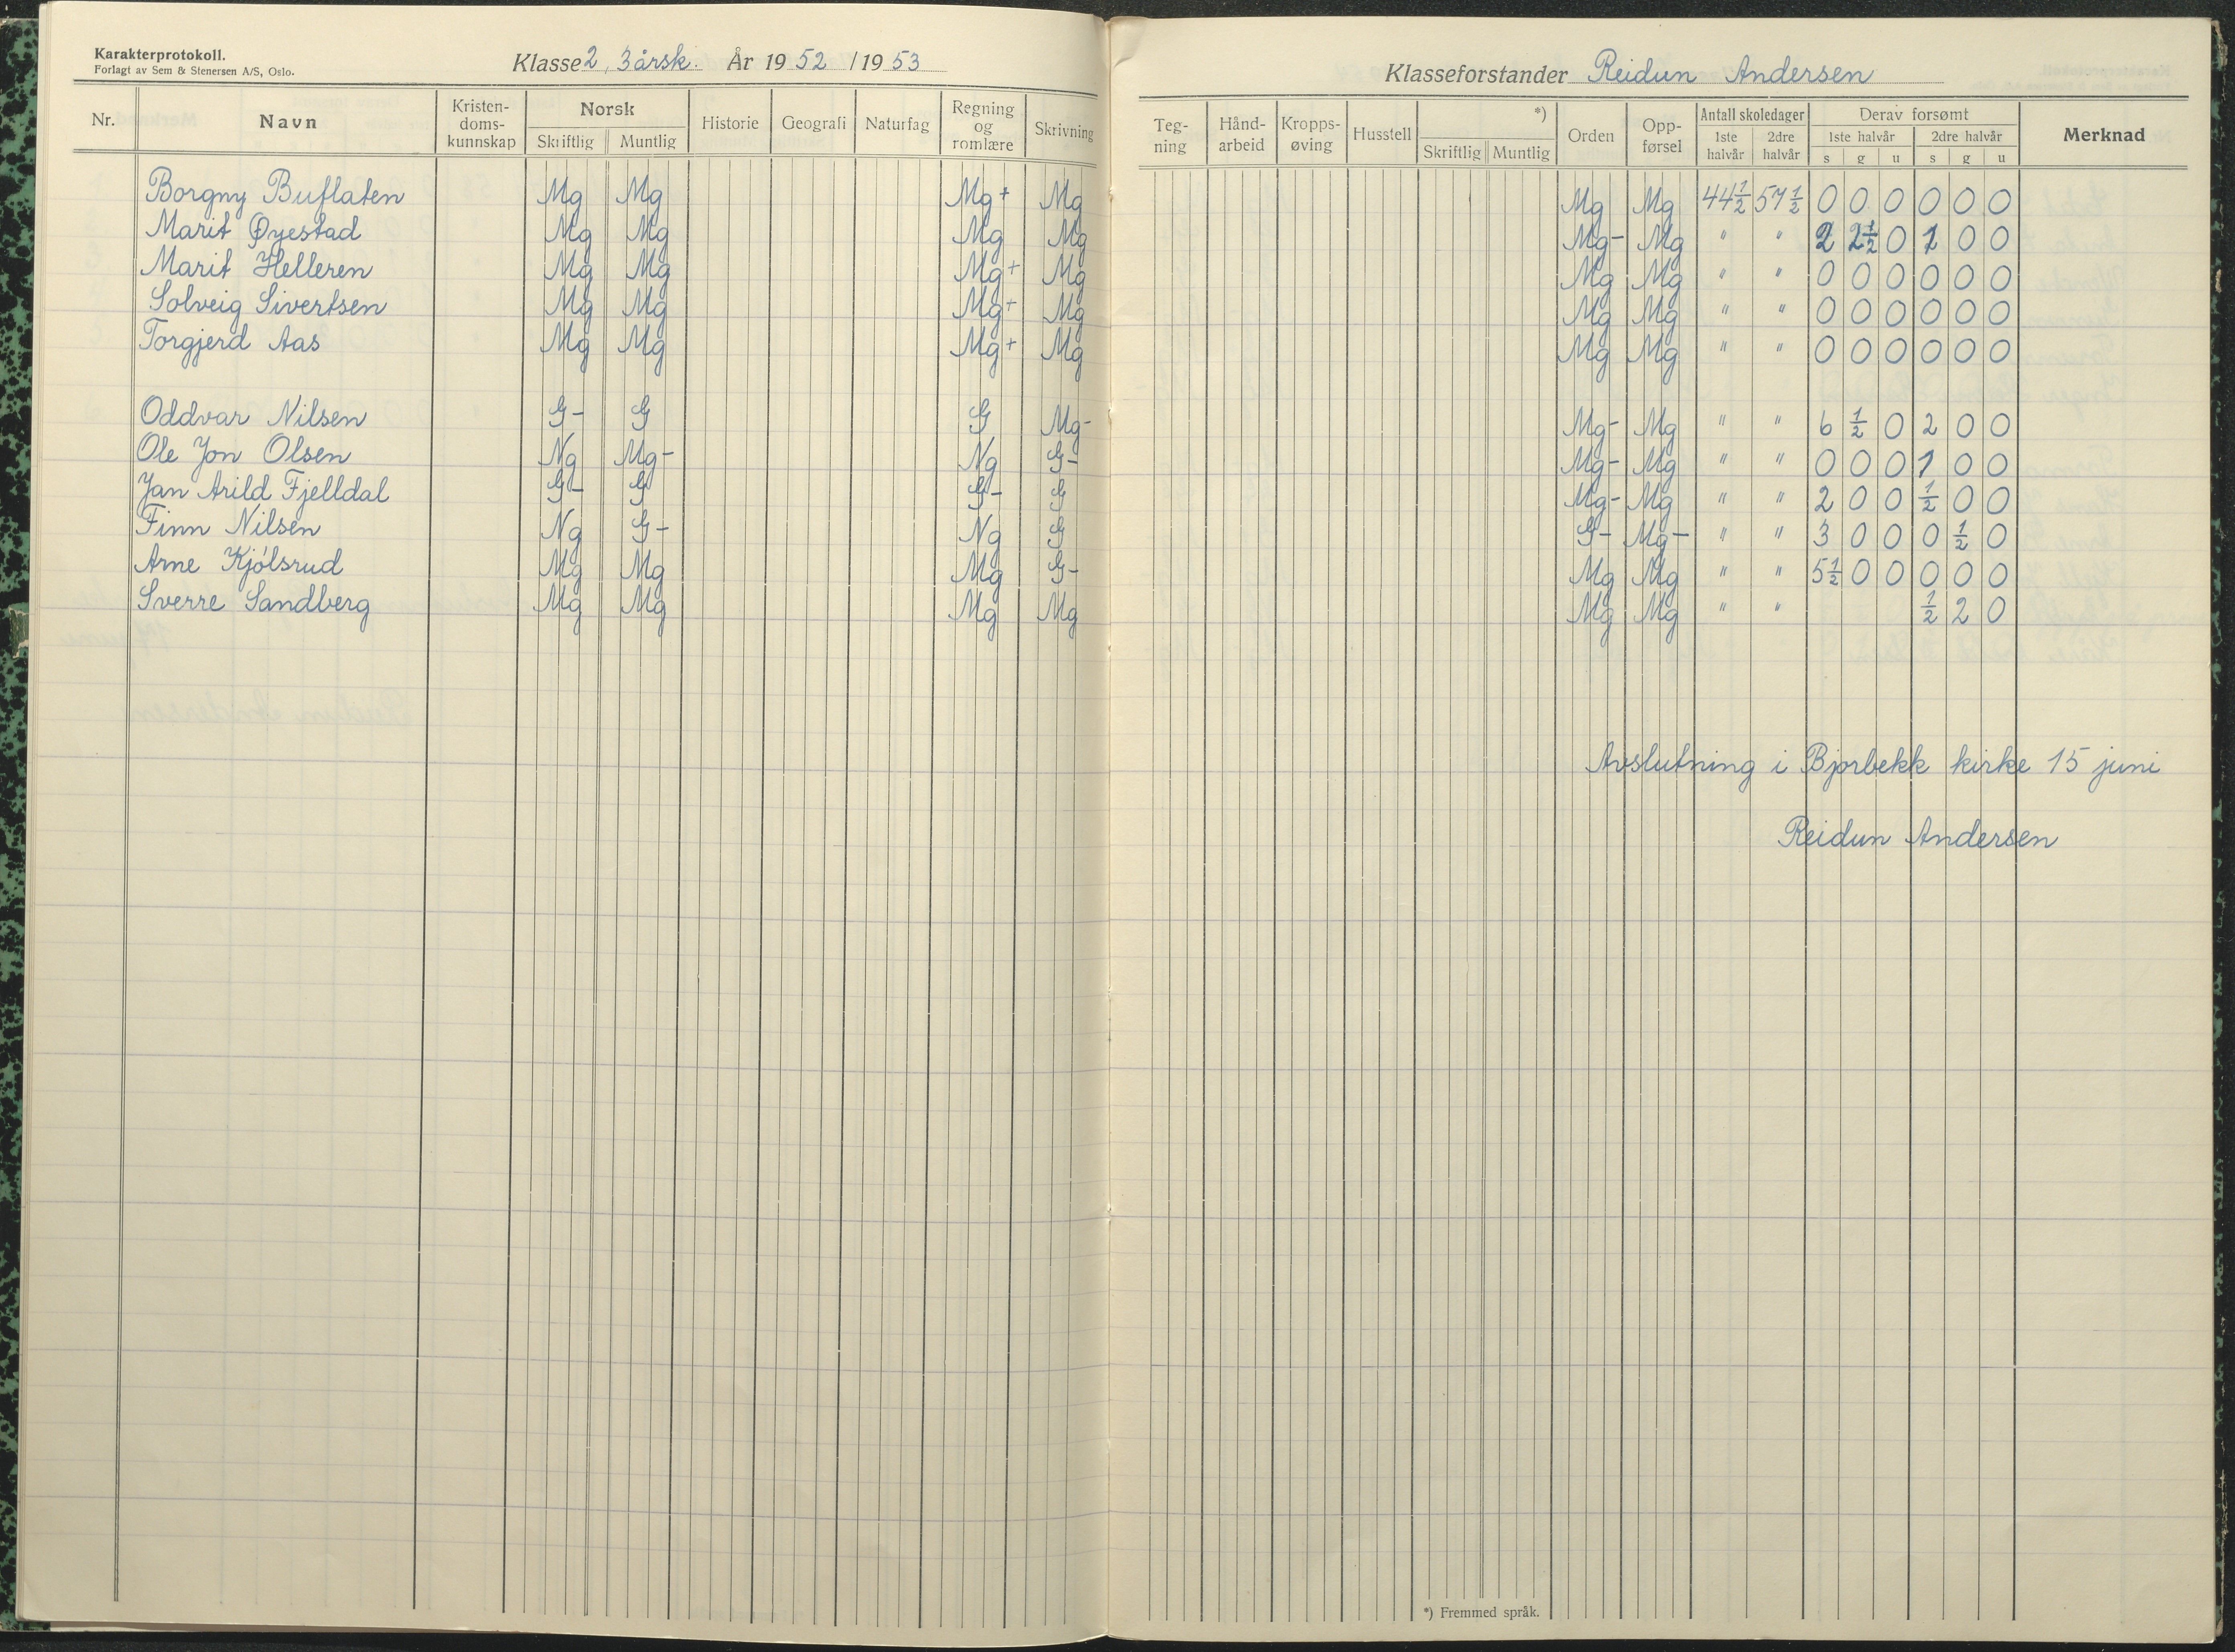 Karakterprotokoll.
Forlagt av Sem & Stenersen A/S, Oslo.
Klasse 2, 3 årsk. År 1952 / 1953
Klasseforstander Reidun Andersen
Nr. Navn Kristen-doms-kunnskap Norsk Skriftlig Muntlig Historie Geografi Naturfag Regning og romlære Skrivning Teg-ning Hånd-arbeid Kropps-øving Husstell *) Skriftlig Muntlig Orden Opp-førsel Antall skoledager 1ste halvår 2dre halvår Derav forsømt 1ste halvår s g u 2dre halvår s g u Merknad
Borgny Buflaten Mg Mg Mg+ Mg Mg Mg 44½ 57½ 0 0 0 0 0 0
Marit Øyestad Mg Mg Mg Mg Mg- Mg " " 2 2½ 0 1 0 0
Marit Helleren Mg Mg Mg+ Mg Mg Mg " " 0 0 0 0 0 0
Solveig Sivertsen Mg Mg Mg+ Mg Mg Mg " " 0 0 0 0 0 0
Torgjerd Aas Mg Mg Mg+ Mg Mg Mg " " 0 0 0 0 0 0
Oddvar Nilsen G- G G Mg- Mg- Mg " " 6 ½ 0 2 0 0
Ole Jon Olsen Ng Mg- Ng G- Mg- Mg " " 0 0 0 1 0 0
Jan Arild Fjelldal G- G G- G Mg- Mg " " 2 0 0 ½ 0 0
Finn Nilsen Ng G- Ng G G- Mg- " " 3 0 0 0 ½ 0
Arne Kjólsrud Mg Mg Mg G- Mg Mg " " 5½ 0 0 0 0 0
Sverre Sandberg Mg Mg Mg Mg Mg Mg " " ½ 2 0
Avslutning i Bjorbekk kirke 15 juni
Reidun Andersen
*) Fremmed språk.